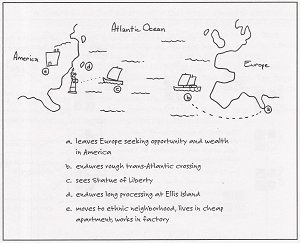 Atlantic Ocean
America
Europe
e
d
c
b
a
a. leaves Europe seeking opportunity and wealth
in America
b. endures rough trans-Atlantic crossing
c. sees Statue of Liberty
d. endures long processing at Ellis Island
e. moves to ethnic neighborhood, lives in cheap
apartment, works in factory